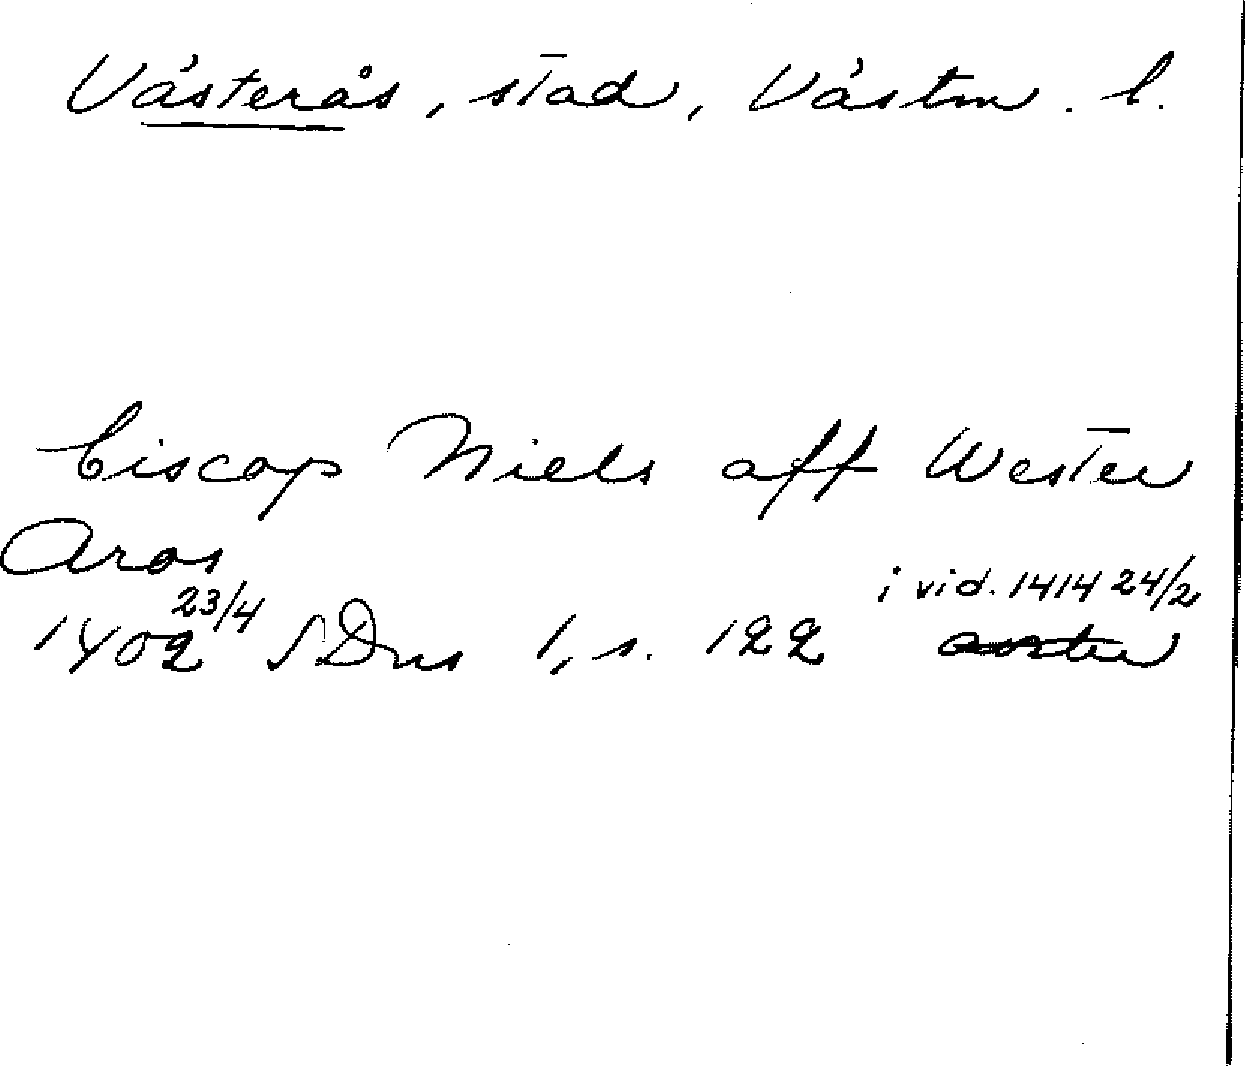 Västerås, stad, Västm. l.
biscop Niels aff Wester
Aros
23/4 i vid. 1414 24/2
1402 SDns 1, s. 122